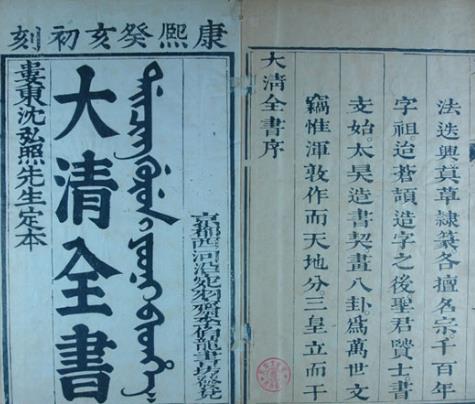 康熙癸亥初刻
婁東沈弘照先生定本
大清全書
ᡩᠠᡳᠴᡳᠩ ᡤᡠᡵᡠᠨ ᡳ ᠶᠣᠣᠨᡳ ᠪᡳᡨᡥᡝ
京都西河沿宛羽齋李伯龍書房發兌
大清全書序
竊惟渾敦作而天地分。三皇立而干
支始。太昊造書契畫八卦。為萬世文
字祖。迨蒼頡造字之後聖君賢士書
法迭興真草隸篆各擅名宗。千百年